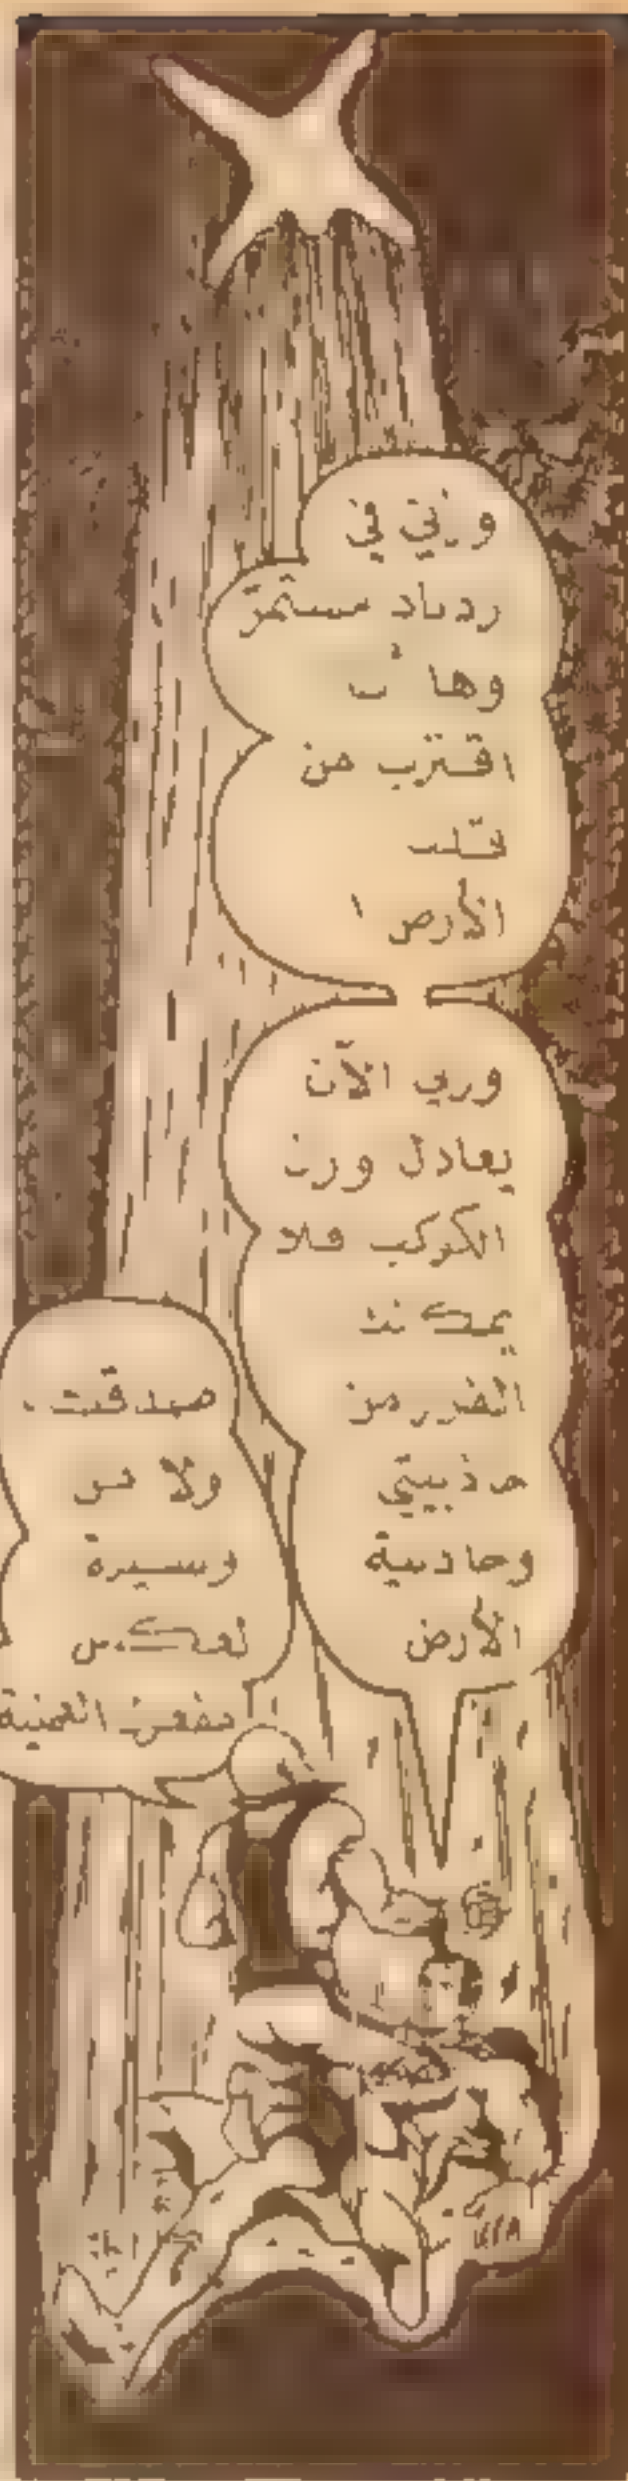 وزني في
ازدياد مستمر
وها
اقترب من
قلب
الأرض !
وزني الآن
يعادل وزن
الكوكب فلا
يمكنك
الفرار من
جاذبيتي
وجاذبية
الأرض
صدقت .
ولا من
وسيلة
لعكس